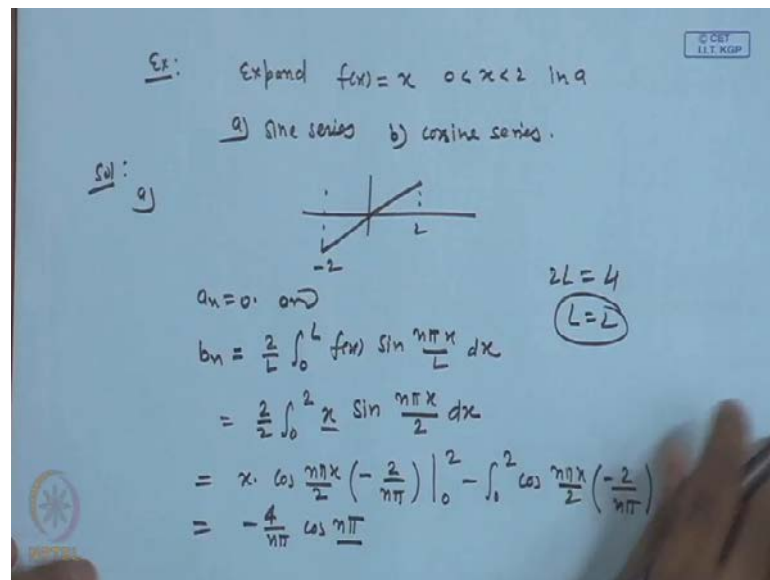 © CET
I.I.T. KGP
Ex: Expand f(x) = x 0 < x < 2 in a
a) sine series b) cosine series.
Sol:
a)
-2 2
2L = 4
L = 2
a_n = 0. and
b_n = 2/L ∫_0^L f(x) sin nπx/L dx
= 2/2 ∫_0^2 x sin nπx/2 dx
= x. cos nπx/2 (-2/nπ) |_0^2 - ∫_0^2 cos nπx/2 (-2/nπ)
= -4/nπ cos nπ
NPTEL